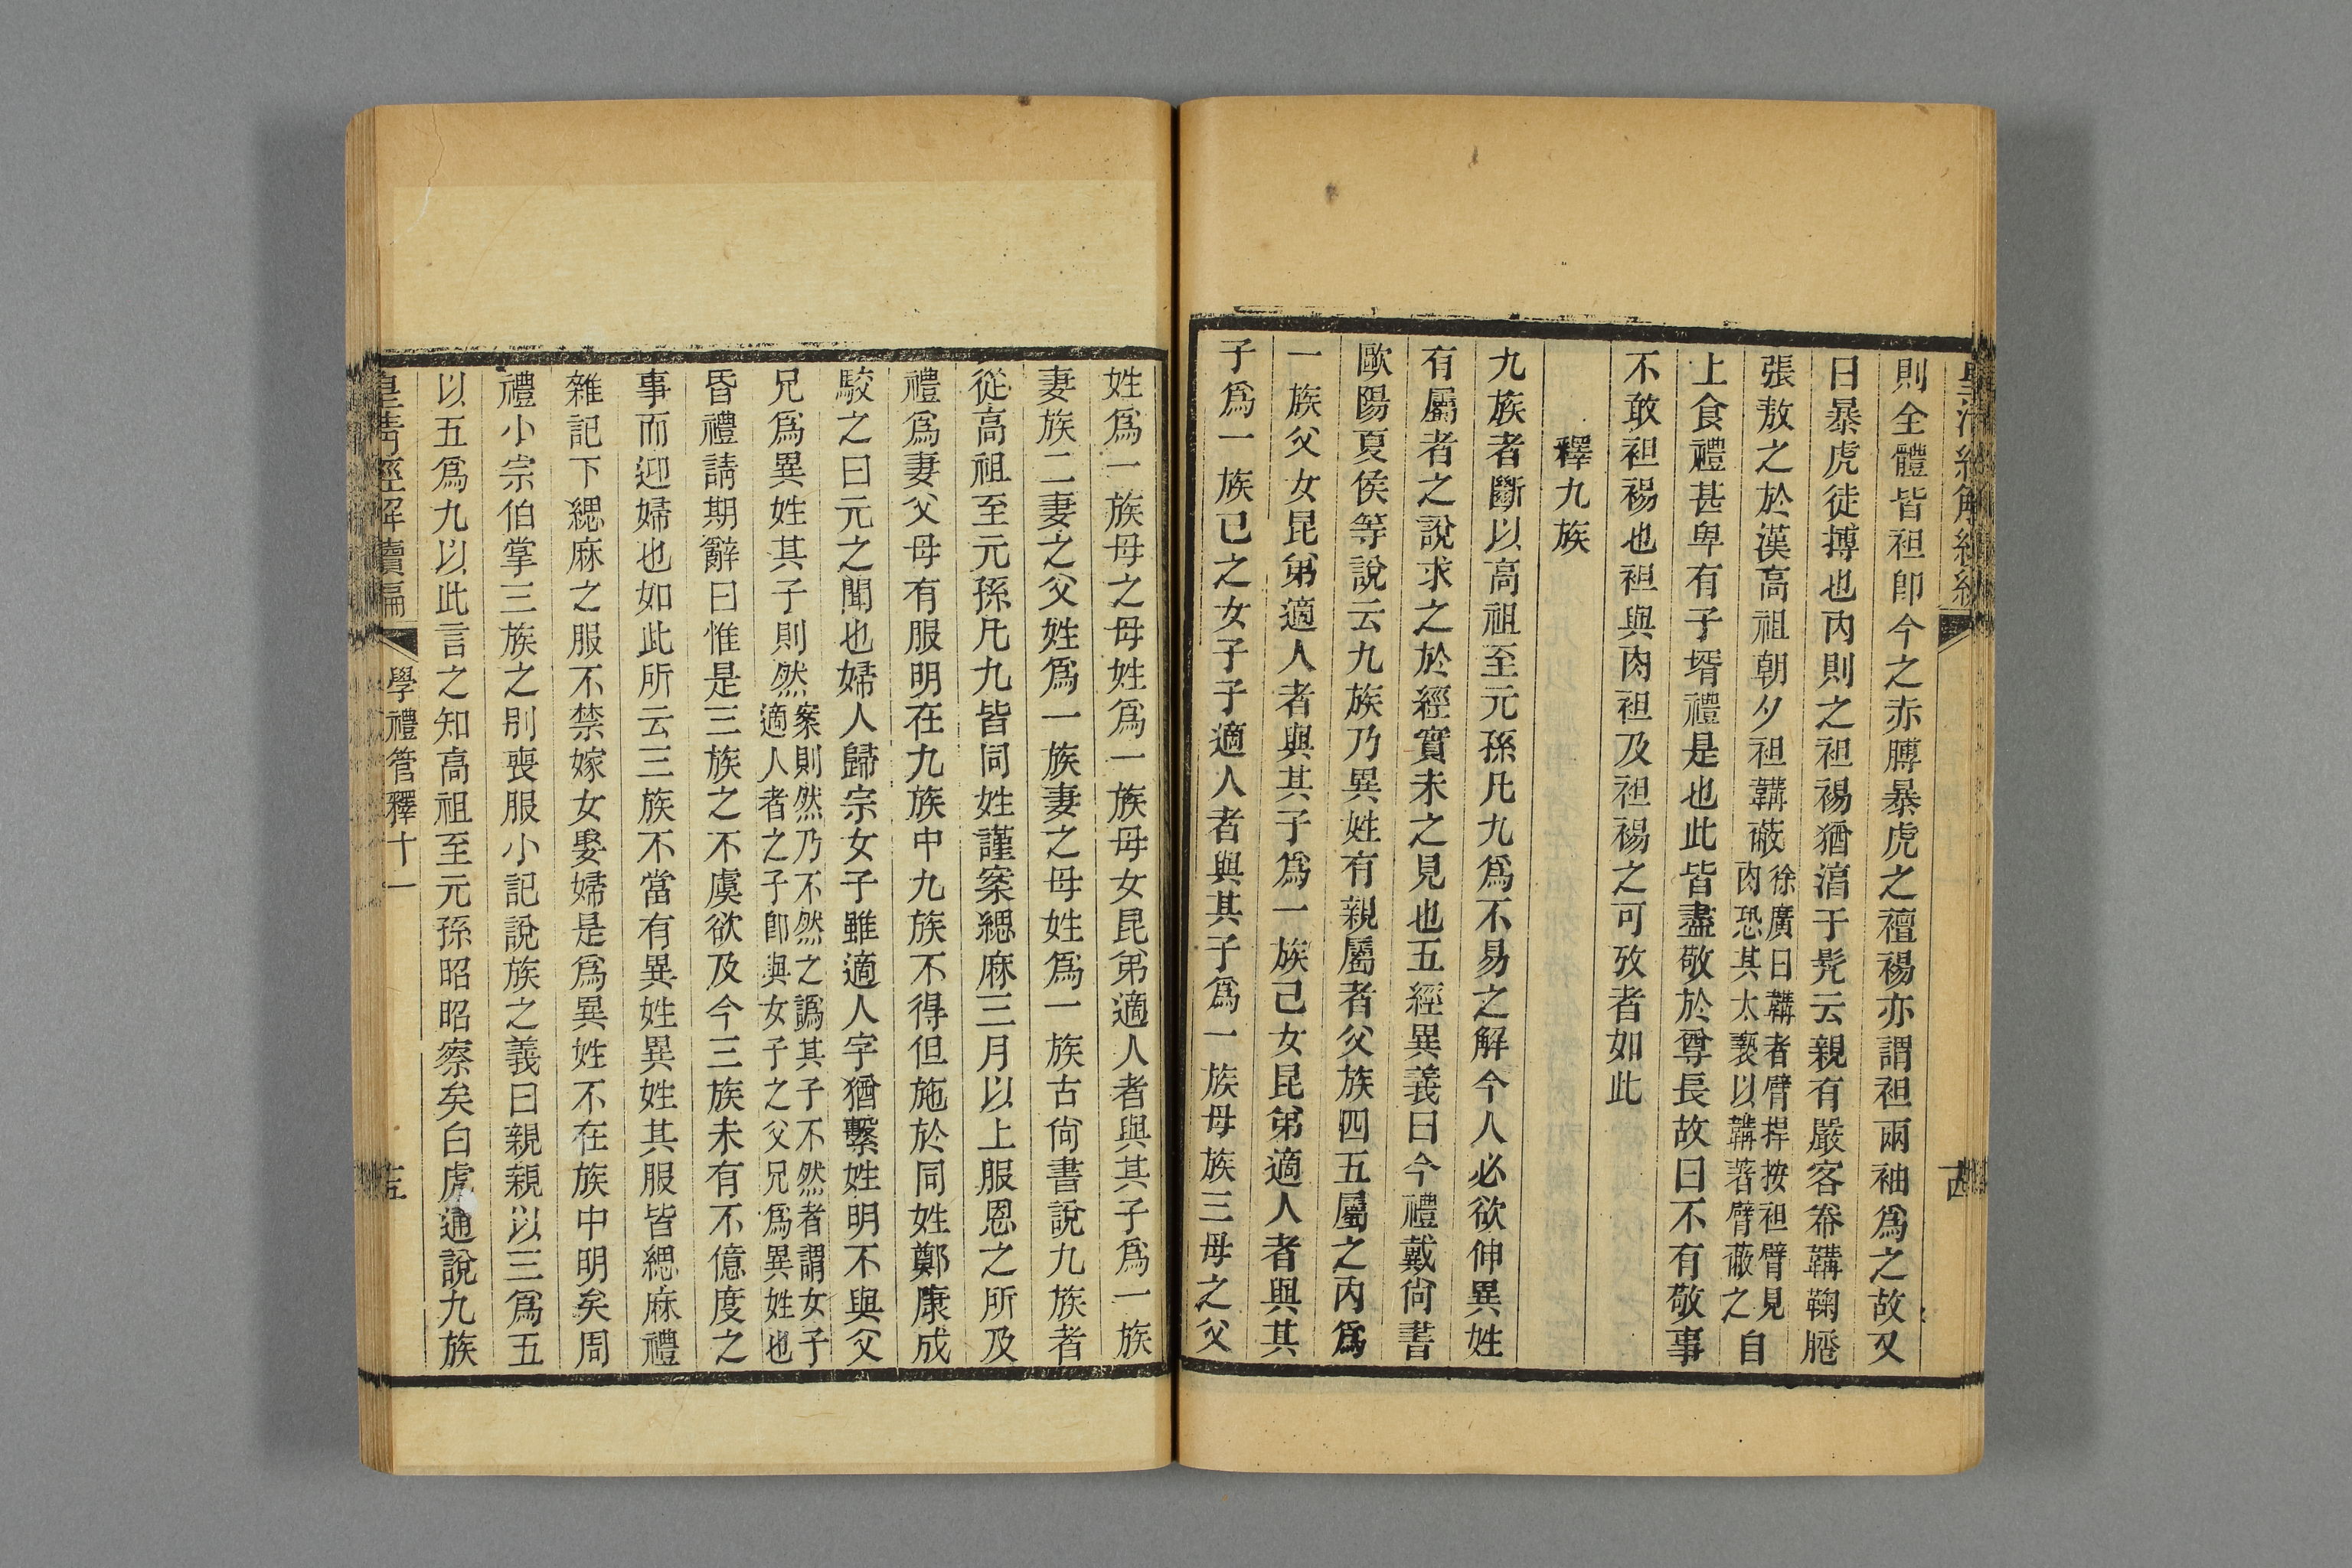 則全體皆袒卽今之赤膊暴虎之襢裼亦謂袒兩袖爲之故又
曰暴虎徒搏也内則之袒裼猶淳于髡云親有嚴客帣鞲鞠䠆
張敖之於漢高祖朝夕袒韝蔽徐廣曰韝者臂捍按袒臂見
肉恐其太褻以韝著臂蔽之自
上食禮甚卑有子壻禮是也此皆盡敬於尊長故曰不有敬事
不敢袒裼也袒與肉袒及袒裼之可攷者如此
釋九族
九族者斷以高祖至元孫凡九爲不易之解今人必欲伸異姓
有屬者之說求之於經實未之見也五經異義曰今禮戴尙書
歐陽夏侯等說云九族乃異姓有親屬者父族四五屬之内爲
一族父女昆弟適人者與其子爲一族己女昆弟適人者與其
子爲一族己之女子子適人者與其子爲一族母族三母之父
姓爲一族母之母姓爲一族母女昆弟適人者與其子爲一族
妻族二妻之父姓爲一族妻之母姓爲一族古尙書說九族者
從高祖至元孫凡九皆同姓謹案緦麻三月以上服恩之所及
禮爲妻父母有服明在九族中九族不得但施於同姓鄭康成
駮之曰元之聞也婦人歸宗女子雖適人字猶繫姓明不與父
兄爲異姓其子則然案則然乃不然之譌其子不然者謂女子
適人者之子卽與女子之父兄爲異姓也
昏禮請期辭曰惟是三族之不虞欲及今三族未有不億度之
事而迎婦也如此所云三族不當有異姓異姓其服皆緦麻禮
雜記下緦麻之服不禁嫁女娶婦是爲異姓不在族中明矣周
禮小宗伯掌三族之別喪服小記說族之義曰親親以三爲五
以五爲九以此言之知高祖至元孫昭昭察矣白虎通說九族
皇清經解續編
學禮管釋十一